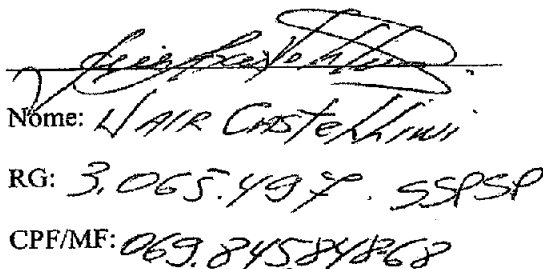 Nome: NAIR CASTELLINI
RG: 3.065.497. SSPSP
CPF/MF: 069.845848-68